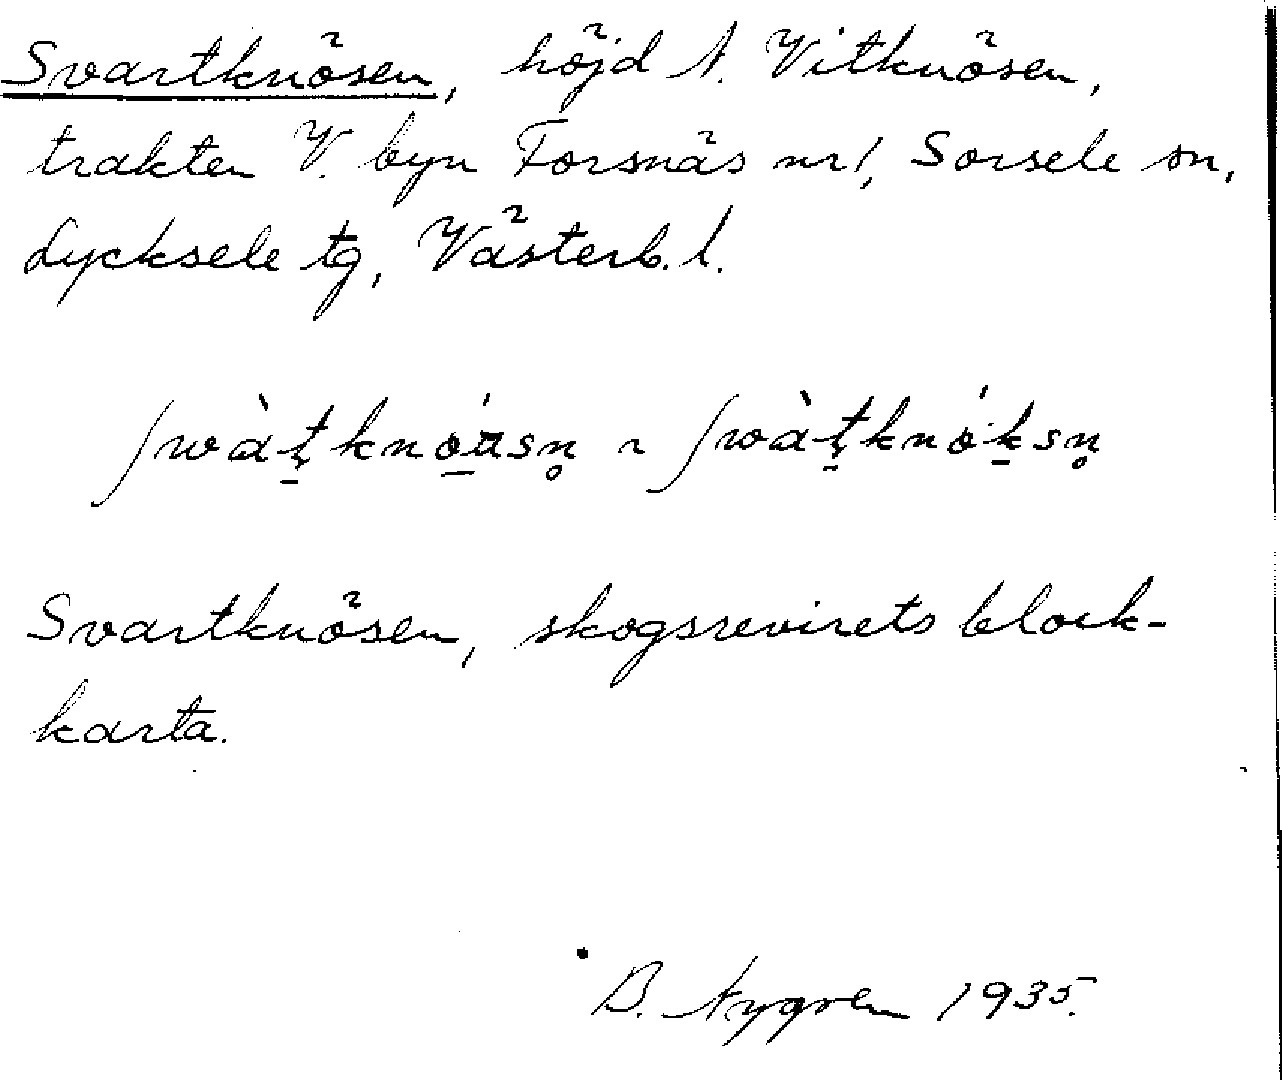 Svartknösen, höjd N. Vitknösen,
trakten V. byn Forsnäs nr 1, Sorsele sn,
Lycksele tg, Västerb. l.
ʃwàṭknó̱a̱sn̥ ~ ʃwàṭknó·ḵsn̥
Svartknösen, skogsrevirets block-
karta.
B. Nygren 1935.